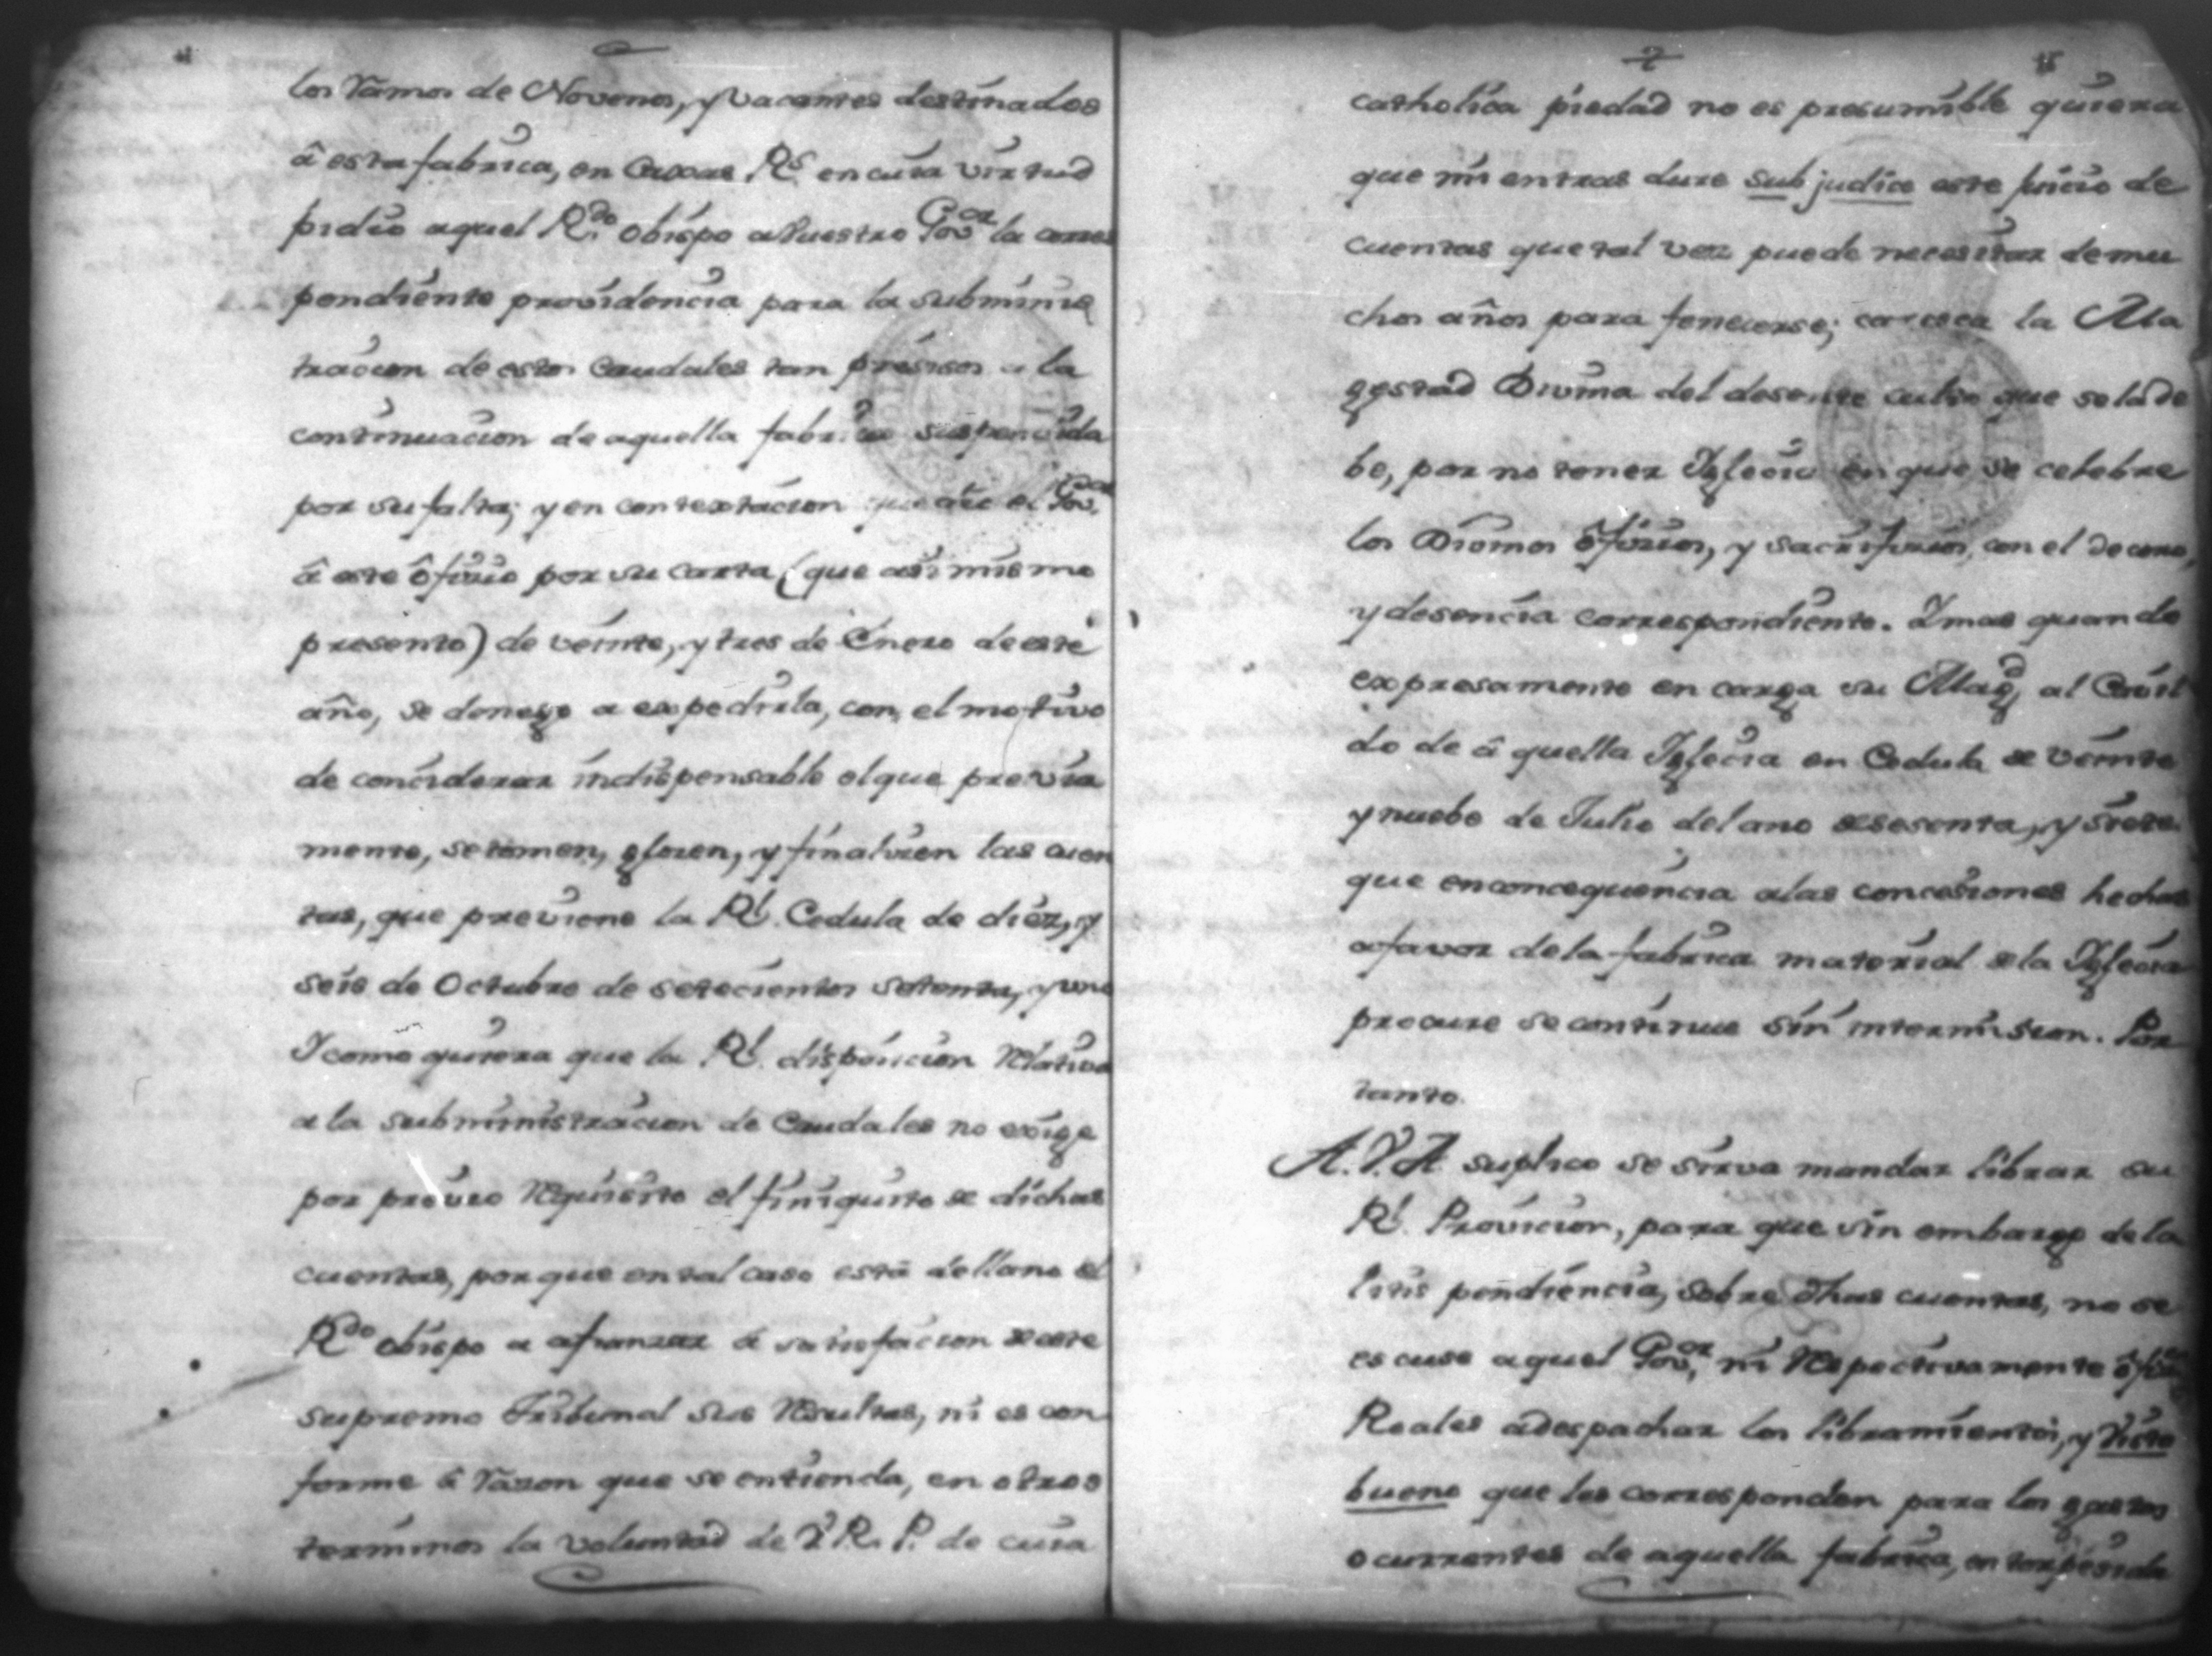 los Ramos de Novenos, y Vacantes destinados
â esta fabrica, en Caxas R.s en cuia virtud
pidio aquel R.do Obispo a Vuestro Gov.or la corres
pondiente providencia para la subminis
tracion de estos Caudales tan presisos a la
continuacion de aquella fabrica suspendida
por su falta; y en contextacion que dio el Gov.or
â este ôficio por su carta (que asi mismo
presento) de veinte, y tres de Enero de este
año, se denego a expedirla, con el motivo
de conciderar indispensable el que previa
mente, se tomen, glosen, y finalicen las cuen
tas, que previene la R.l Cedula de diez, y
seis de Octubre de setecientos setenta, y uno
Y como quiera que la R.l disposicion Relativa
a la subministracion de Caudales no exige
por previo Requisito el finiquito de dichas
cuentas, porque en tal caso está de llano el
R.do Obispo a afianzar â satisfacion de este
supremo Tribunal sus Resultas, ni es con
forme â Razon que se entienda, en otros
terminos la voluntad de V. R. P. de cuia
catholica piedad no es presumible quiera
que mientras dure sub judice este juicio de
cuentas que tal vez puede necesitar de mu
chos años para fenecerse; caresca la Ma
gestad Divina del desente culto que se la de
be, por no tener Iglecia en que se celebre
los Divinos ôficios, y sacrificios, con el decoro,
y desencia correspondiente. Y mas quando
expresamente encarga su Mag.d al Cavil
do de â quella Iglecia en Cedula de veinte
y nuebe de Julio del ano de sesenta, y siete
que en concequencia a las concesiones hechas
a favor de la fabrica material de la Iglecia
procure se continue sin intermision. Por
tanto.
A. V. A. suplico se sirva mandar librar su
R.l Provicion, para que sin embargo de la
litis pendiencia, sobre dhas cuentas, no se
escuse aquel Gov.or, ni Respectivamente
Reales â despachar los libramientos, y Visto
bueno que les corresponden para los gastos
ocurrentes de aquella fabrica,